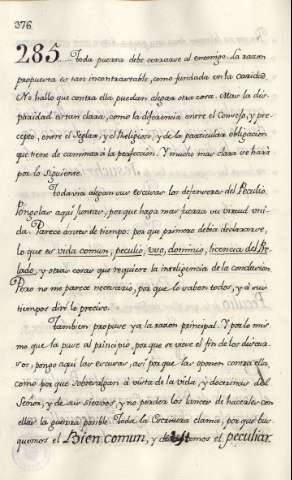 376
285... Toda puerta debe cerrarse al enemigo. La razon
propuesta es tan incontrastable, como fundada en la caridad.
No hallo que contra ella puedan alegar otra cosa. Mas la dis-
paridad es tan clara, como la diferencia entre el Consejo, y pre-
cepto, entre el Seglar, y el Religioso, y de la particular obligacion
que tiene de caminar à la perfeccion. Y mucho mas clara se hará
por lo siguiente.
Todavia alegan sus escusas los defensores del Peculio.
Pongolas aqui juntas, porque haga mas fuerza su virtud uni-
da. Parece antes de tiempo: por que primero debia declararse,
lo que es vida comun, peculio, uso, dominio, licencia del Pre-
lado, y otras cosas que requiere la inteligencia de la conclusion
Pero no me parece necesario, por que lo saben todos, y à sus
tiempos diré lo preciso.
Tambien propuse ya la razon principal. Y por lo mis-
mo que la puse al principio, por que se viese el fin de los
pongo aqui las escusas, asi por que las oponen contra ella
como por que sobresalgan à vista de la vida, y doctrinas del
Señor, y de sus siervos, y no perder los lances de hacerles con
ellas la guerra posible. Toda la Escritura clama, por que bus-
quemos el Bien comun, y el peculiar.